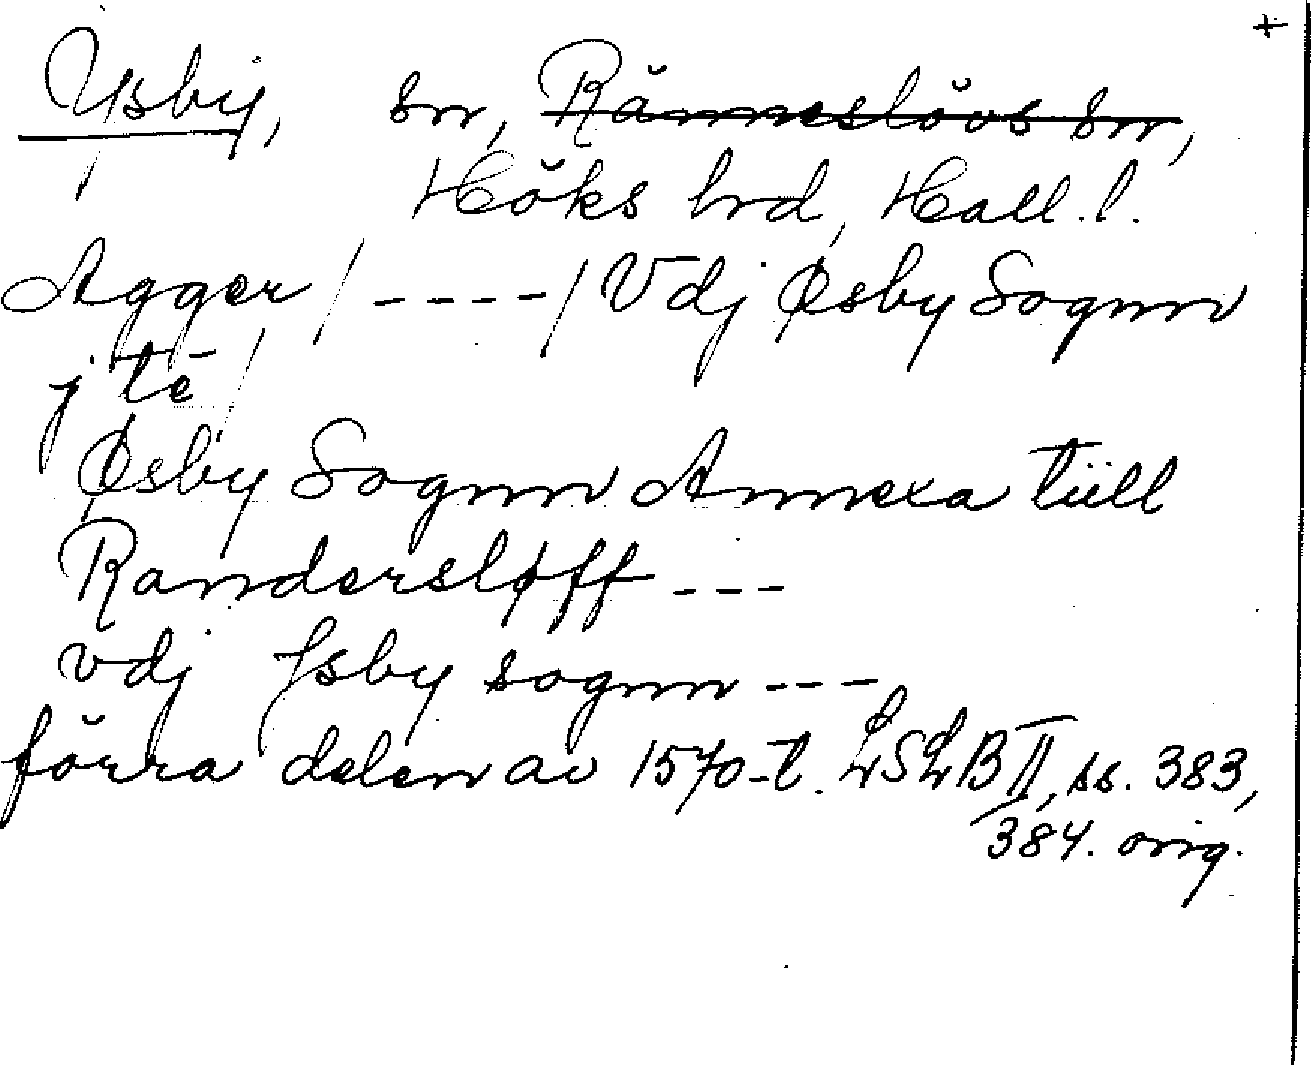 +
Ysby, sn, Ränneslövs sn,
Höks hrd, Hall. l.
Agger / ---- / Vdj Øsby Sognn
j tē /
Øsby Sognn Annexa tiill
Randersløff ---
vdj Jsby sognn ---
förra delen av 1570-t. LSLB II, ss. 383,
384. orig.